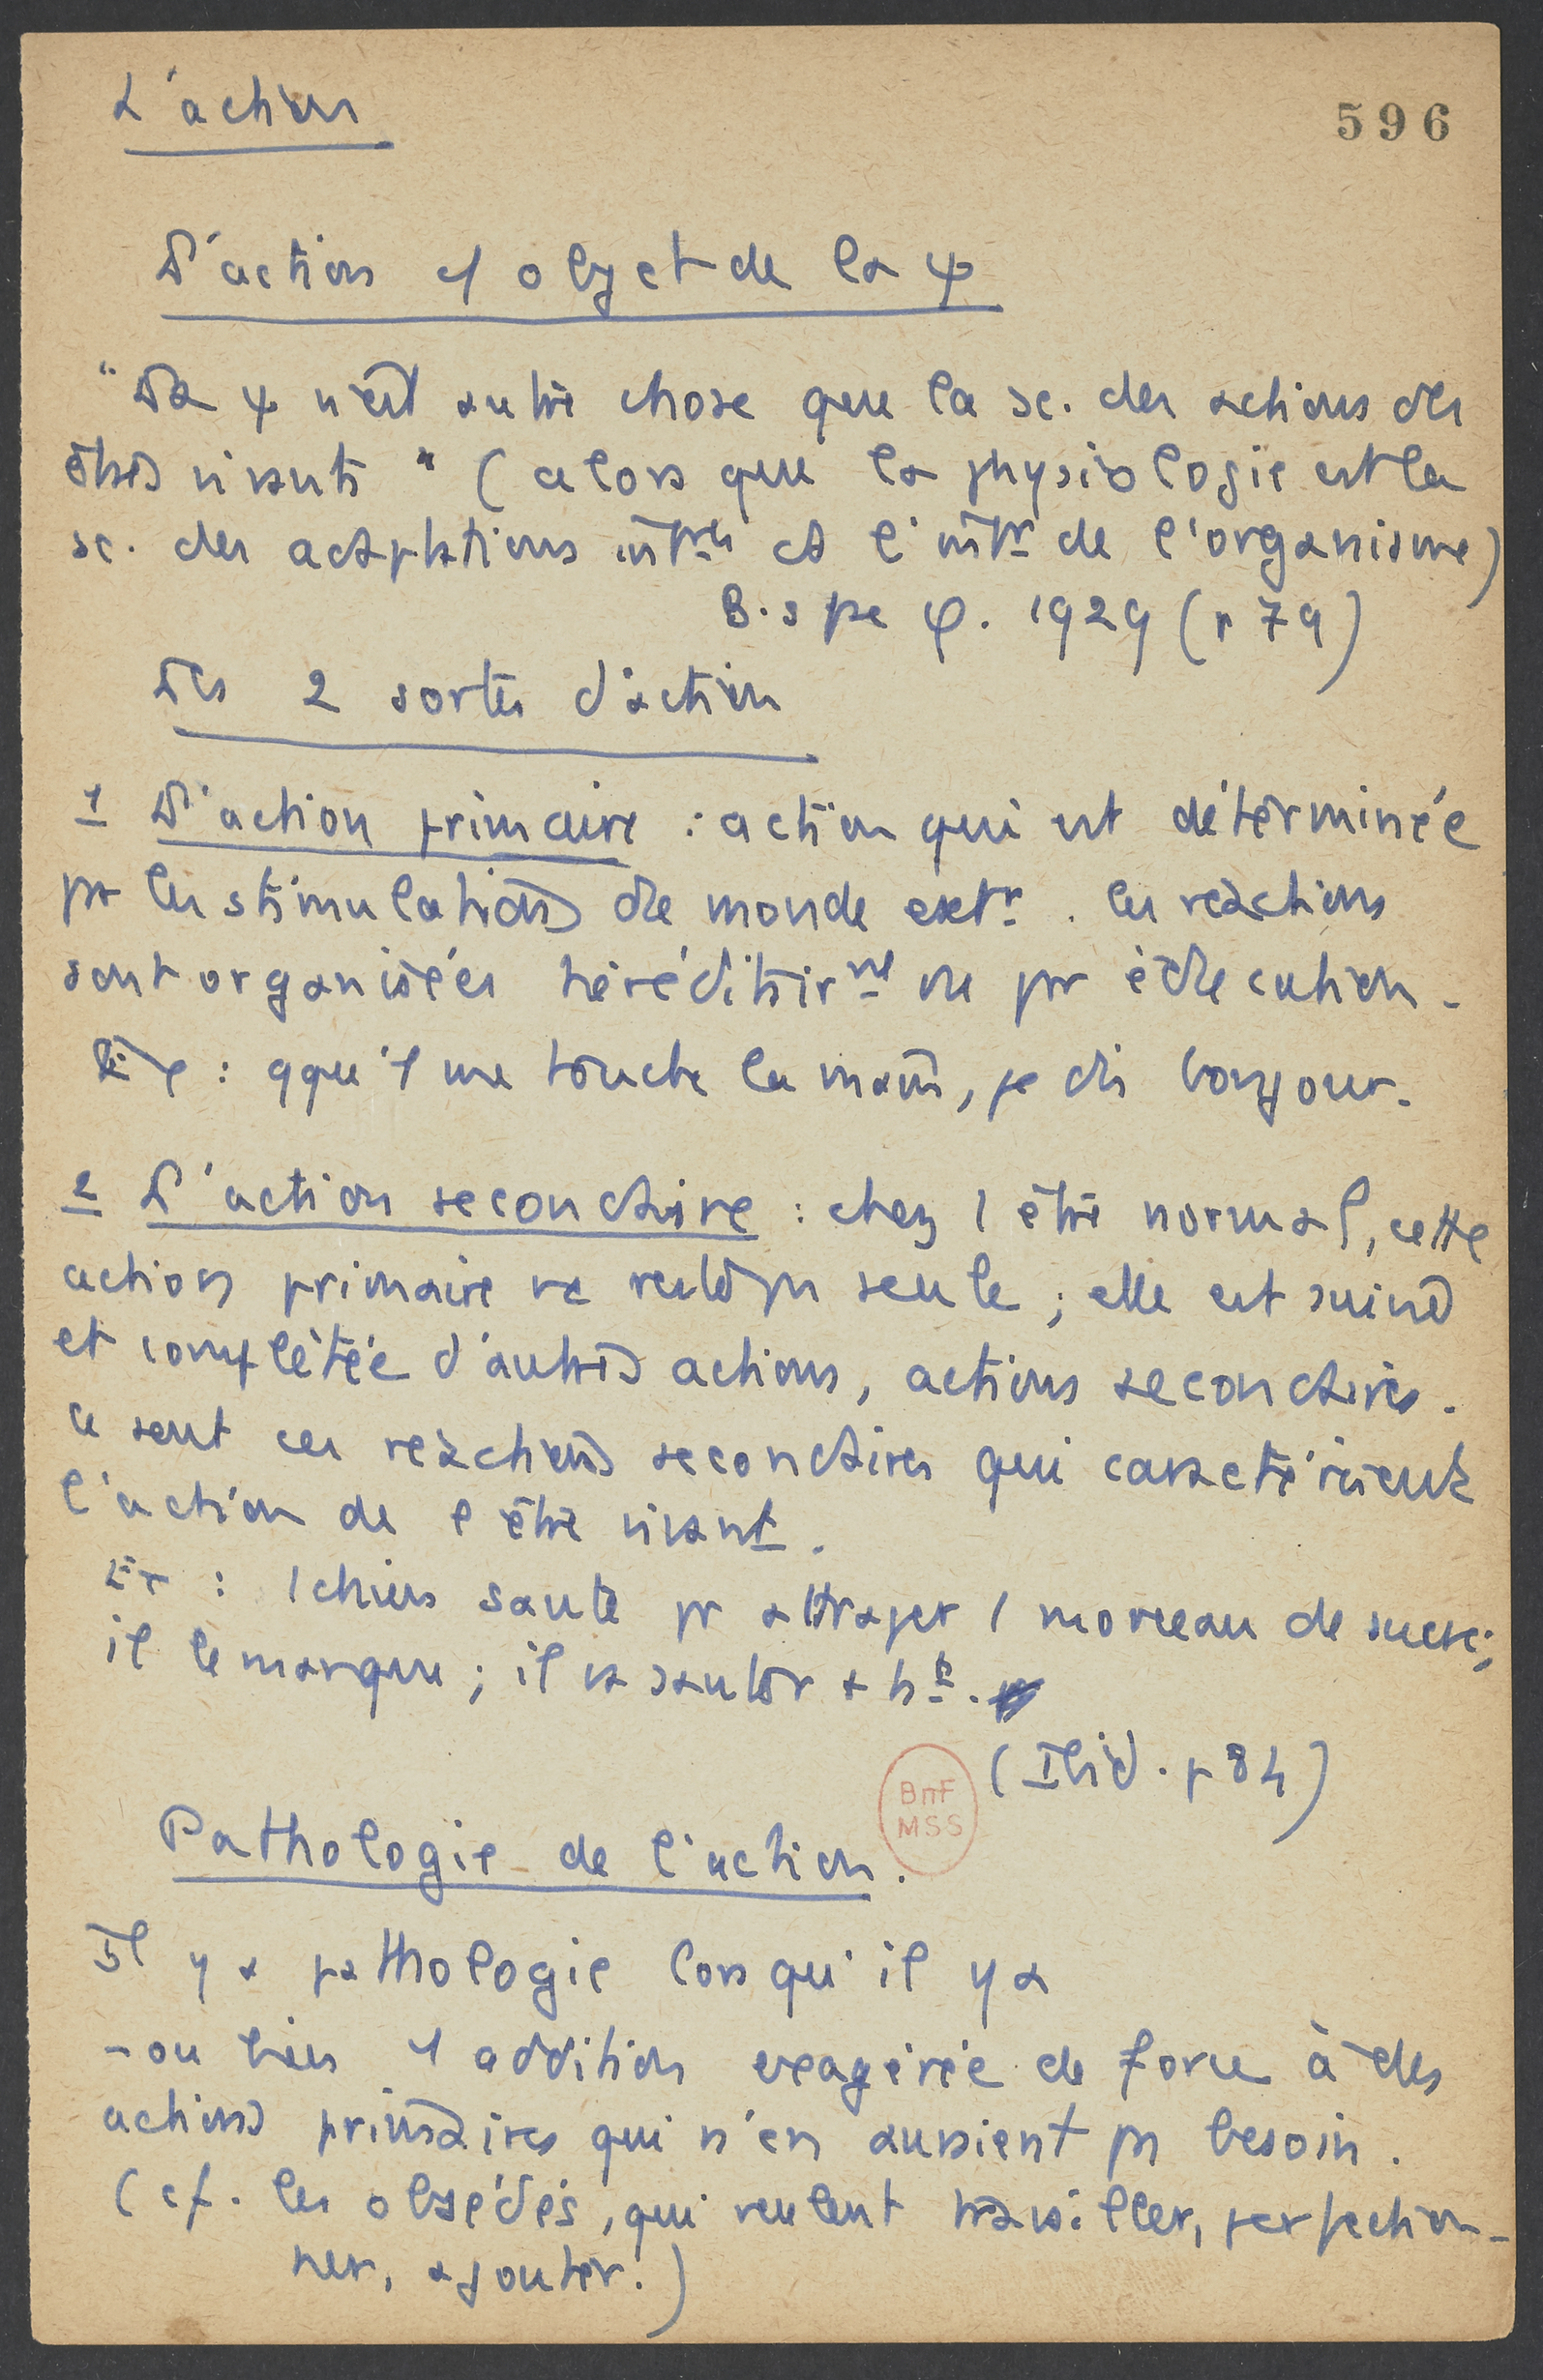 L'action
596
L'action 1 objet de la ψ
"La ψ n'est autre chose que la sc. des actions des
êtres vivants" (alors que la physiologie est la
sc. des adaptations intres à l'intr de l'organisme)
B. spe φ. 1929 (p 79)
Les 2 sortes d'action
1 L'action primaire : action qui est déterminée
pr les stimulations du monde extr. les réactions
sont organisées héréditairmt ou pr éducation.
Ex : qqu'1 me touche la main, je dis bonjour.
2 L'action secondaire : chez l'être normal, cette
action primaire ne reste pas seule ; elle est suivie
et complétée d'autres actions, actions secondaires.
Ce sont ces réactions secondaires qui caractérisent
l'action de l'être vivant.
Ex : 1 chien saute pr attraper 1 morceau de sucre ;
il le manque ; il va sauter + ht.
(Ibid. p 84)
BnF
MSS
Pathologie de l'action.
Il y a pathologie lorsqu'il y a
- ou bien 1 addition exagérée de force à des
actions primaires qui n'en auraient pas besoin.
(cf. les obsédés, qui veulent travailler, perfection-
ner, ajouter.)